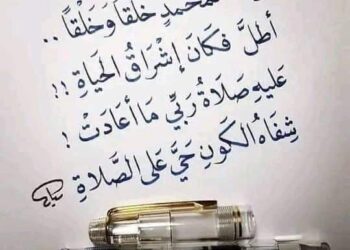 محمدٍ خَلْقًا وَخُلْقًا ..
أَطَلَّ فَكَانَ إِشْرَاقُ الْحَيَاةِ !!
عَلَيْهِ صَلَاةُ رَبِّي مَا أَعَادَتْ !
شِفَاهُ الكَوْنِ حَيَّ عَلَى الصَّلَاةِ